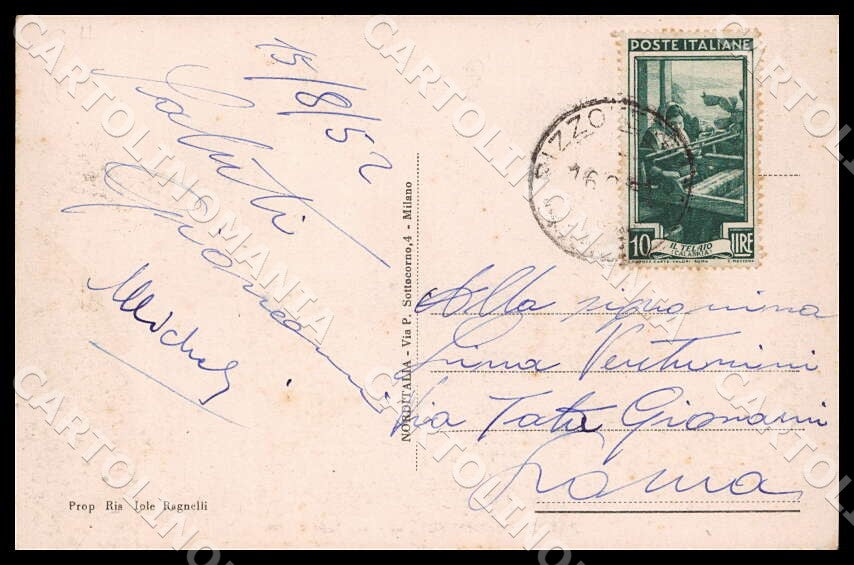 15/8/52
Saluti
Giovanni
Michele
Prop Ris Jole Ragnelli
NORDITALIA - Via P. Sottocorno, 4 - Milano
POSTE ITALIANE
10 LIRE
IL TELAIO
(CALABRIA)
PIZZO
16
Alla signorina
Lina Venturini
Via Tata Giovanni
Roma
CARTOLINOMANIA